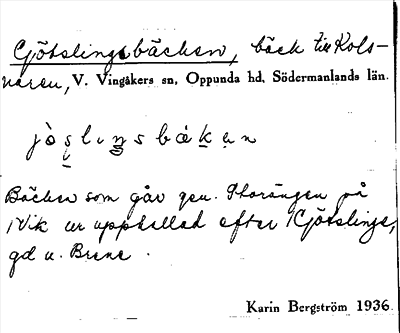 Götslingsbäcken, bäck till Kols-
naren, V. Vingåkers sn, Oppunda hd, Södermanlands län.
jòslıŋsbäkən
Bäcken som går gen. Storängen på
Vik är uppkallad efter Götslinge,
gd u. Brene.
Karin Bergström 1936.